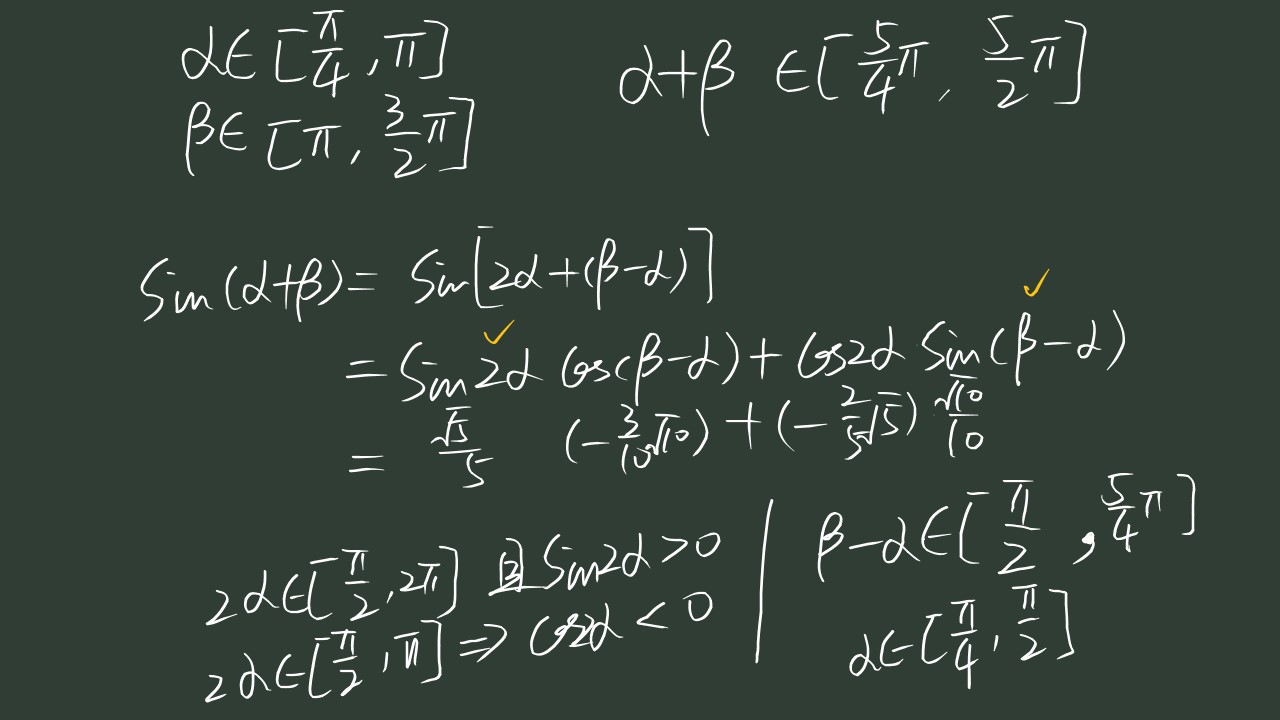 α∈[π/4,π]
β∈[π,3/2π]
α+β ∈[5/4π,5/2π]
Sin(α+β)= Sin[2α+(β-α)]
= Sin2α Cos(β-α)+Cos2α Sin(β-α)
= √5/5 (-3/10√10)+(-2/5√5) √10/10
2α∈[π/2,2π] 且Sin2α>0
2α∈[π/2,π]⇒Cos2α<0
β-α∈[π/2,5/4π]
α∈[π/4,π/2]